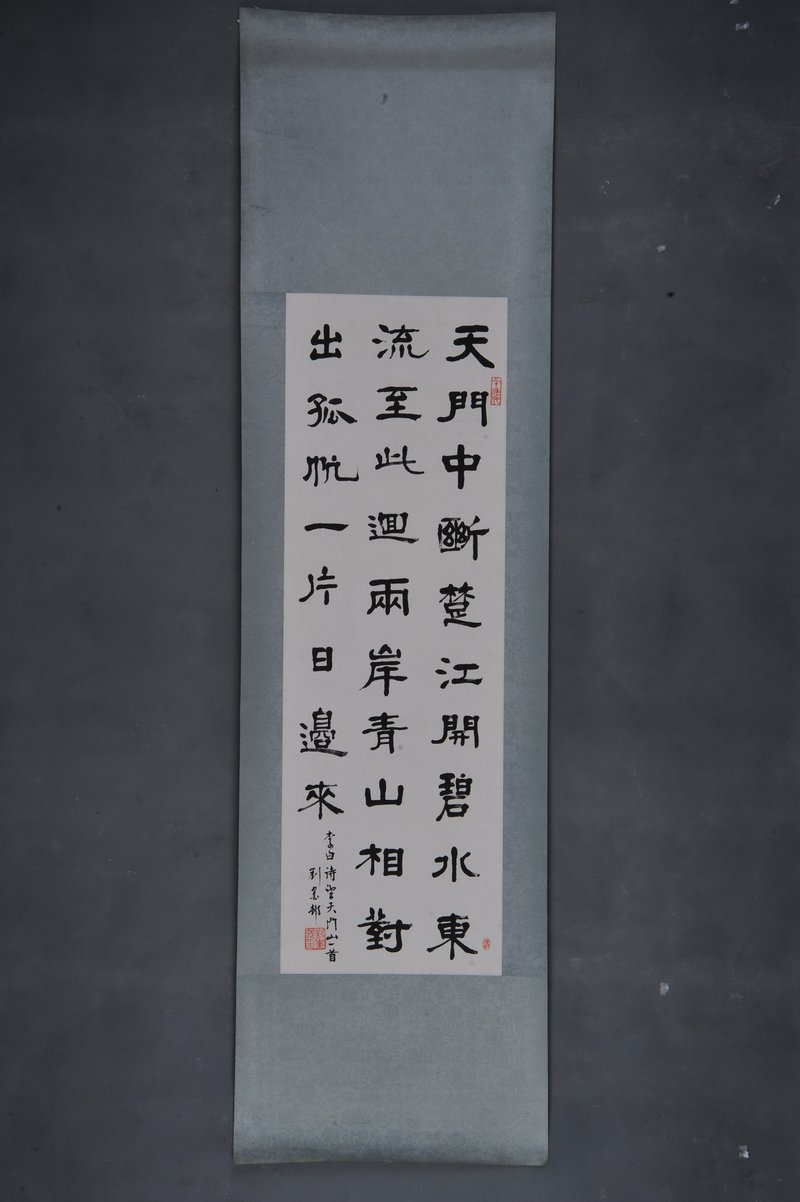 天門中斷楚江開碧水東
流至此迴兩岸青山相對
出孤帆一片日邊來
李白诗望天门山一首